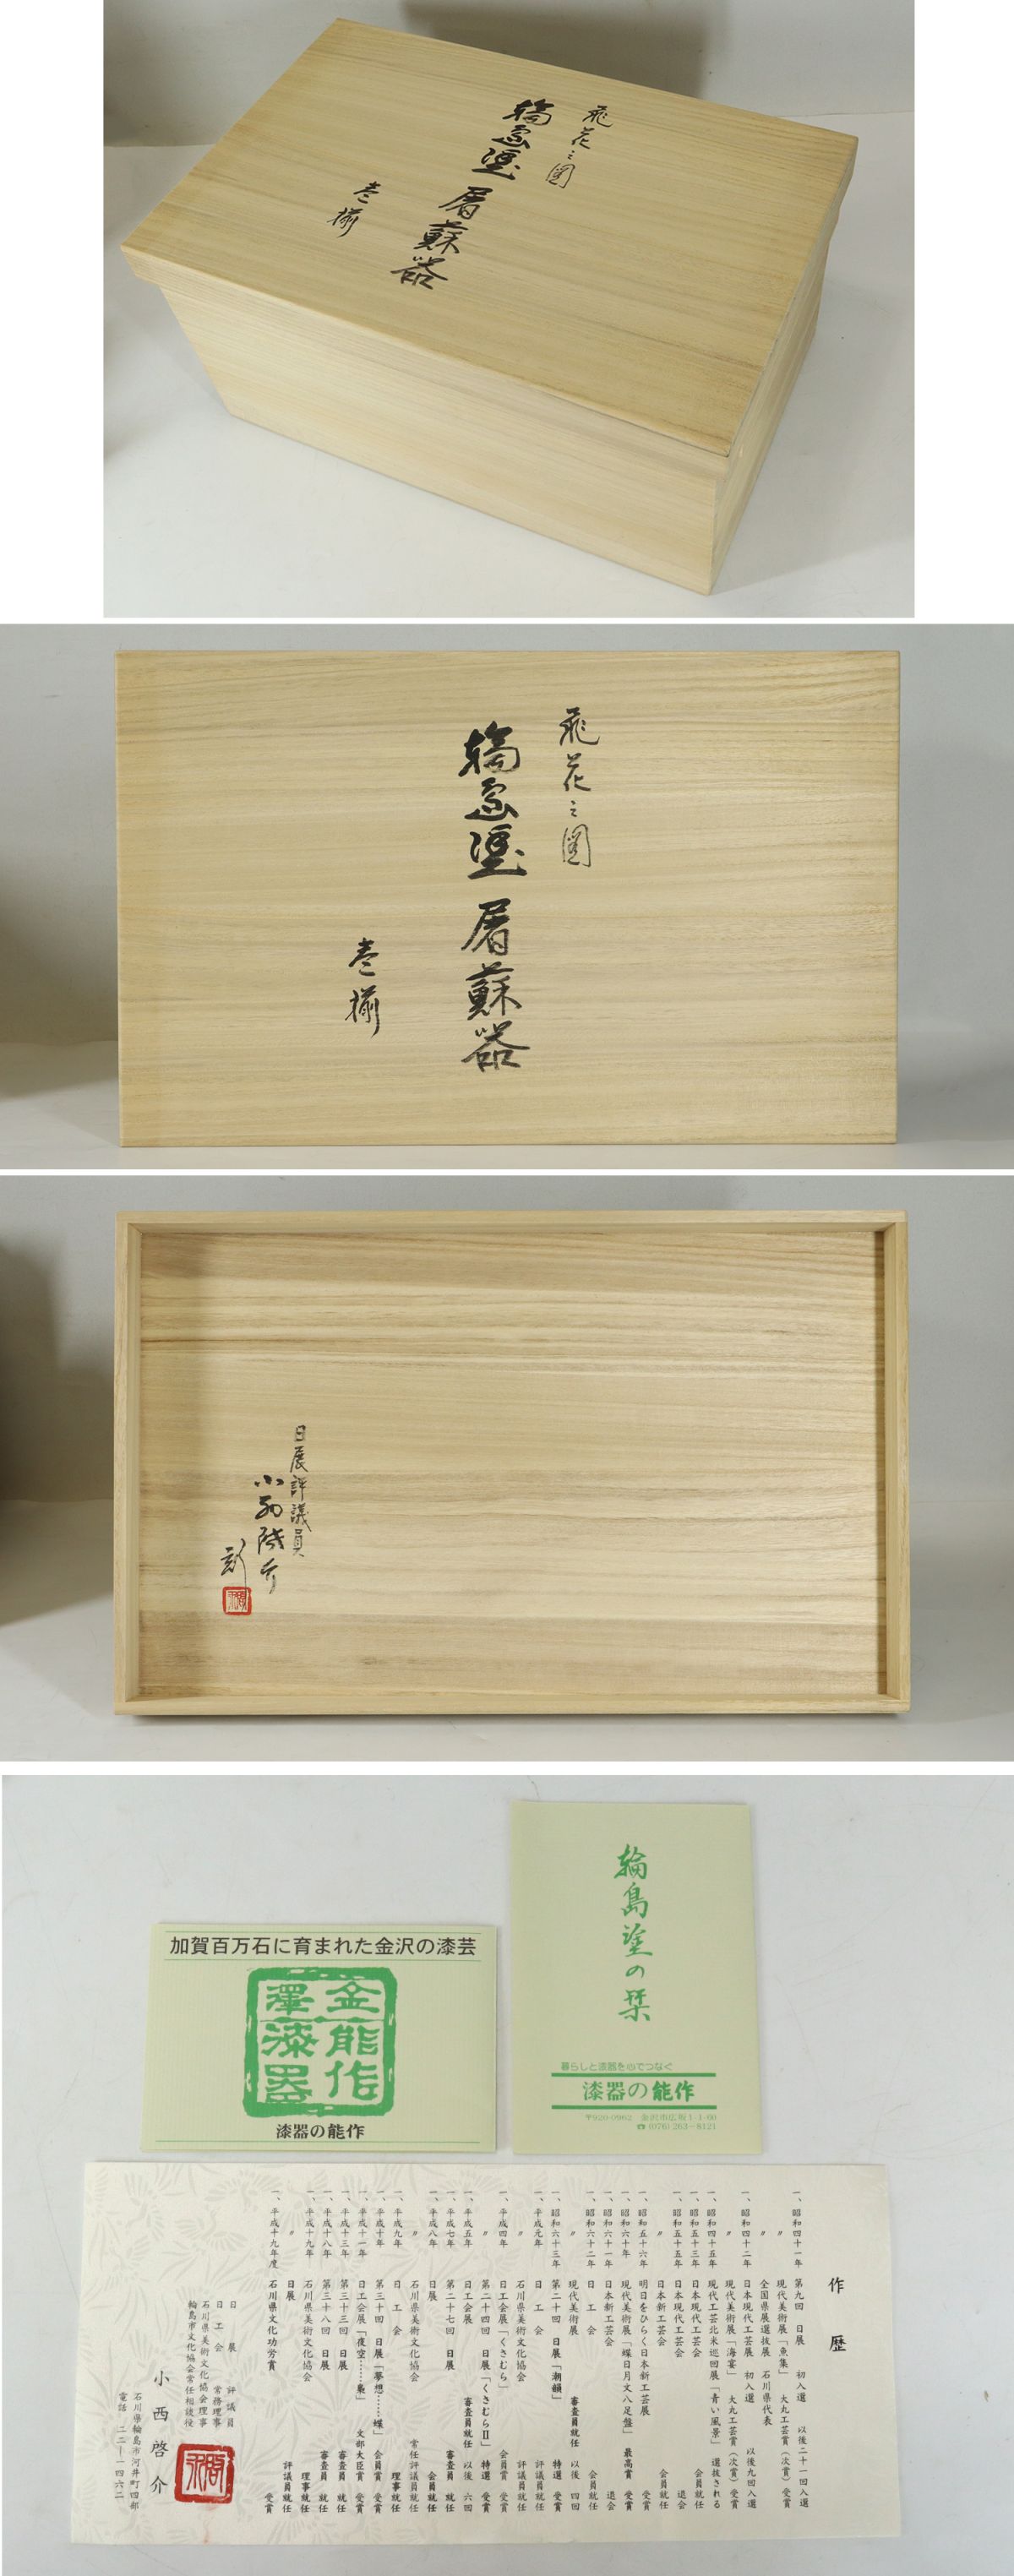 飛花之圖
輪島塗 屠蘇器
壱揃
飛花之圖
輪島塗 屠蘇器
壱揃
日展評議員
小西啓介
加賀百万石に育まれた金沢の漆芸
金澤
能作
漆器
漆器の能作
輪島塗の栞
暮らしと漆器を心でつなぐ
漆器の能作
〒920-0962 金沢市広坂1-1-60
☎(076)263-8121
作歴
一、昭和四十一年 第九回 日展 初入選 以後二十一回入選
〃 現代美術展「魚集」 大丸工芸賞(次賞)受賞
〃 全国県展選抜展 石川県代表
一、昭和四十二年 日本現代工芸展 初入選 以後九回入選
〃 現代美術展「海宴」 大丸工芸賞(次賞)受賞
一、昭和四十五年 現代工芸北米巡回展「青い風景」 選抜される
一、昭和五十三年 日本現代工芸会 会員就任
一、昭和五十五年 日本現代工芸会 退会
〃 日本新工芸会 会員就任
一、昭和五十六年 明日をひらく日本新工芸展 受賞
一、昭和六十年 現代美術展「蝶日月文八足盤」 最高賞 受賞
一、昭和六十一年 日本新工芸会 退会
一、昭和六十二年 日工会 会員就任
〃 現代美術展 審査員就任 以後 四回
一、昭和六十三年 第二十回 日展「潮韻」 特選 受賞
一、平成元年 日工会 評議員就任
〃 石川県美術文化協会 評議員就任
一、平成四年 日工会展「くさむら」 会員賞 受賞
〃 第二十四回 日展「くさむらⅡ」 特選 受賞
一、平成五年 日工会展 審査員就任 以後 六回
一、平成七年 第二十七回 日展 審査員 就任
一、平成八年 日展 会員就任
〃 石川県美術文化協会 常任評議員就任
一、平成九年 日工会 理事就任
一、平成十年 第三十回 日展「夢想……蝶」 会員賞 受賞
一、平成十一年 日工会展「夜空……梟」 文部大臣賞 受賞
一、平成十三年 第三十三回 日展 審査員 就任
一、平成十八年 第三十八回 日展 審査員 就任
一、平成十九年 石川県美術文化協会 理事就任
〃 日展 評議員就任
一、平成十九年度 石川県文化功労賞 受賞
日展 評議員
日工会 常務理事
石川県美術文化協会理事
輪島市文化協会常任相談役
小西啓介
石川県輪島市河井町四部
電話 二二ー一四六二